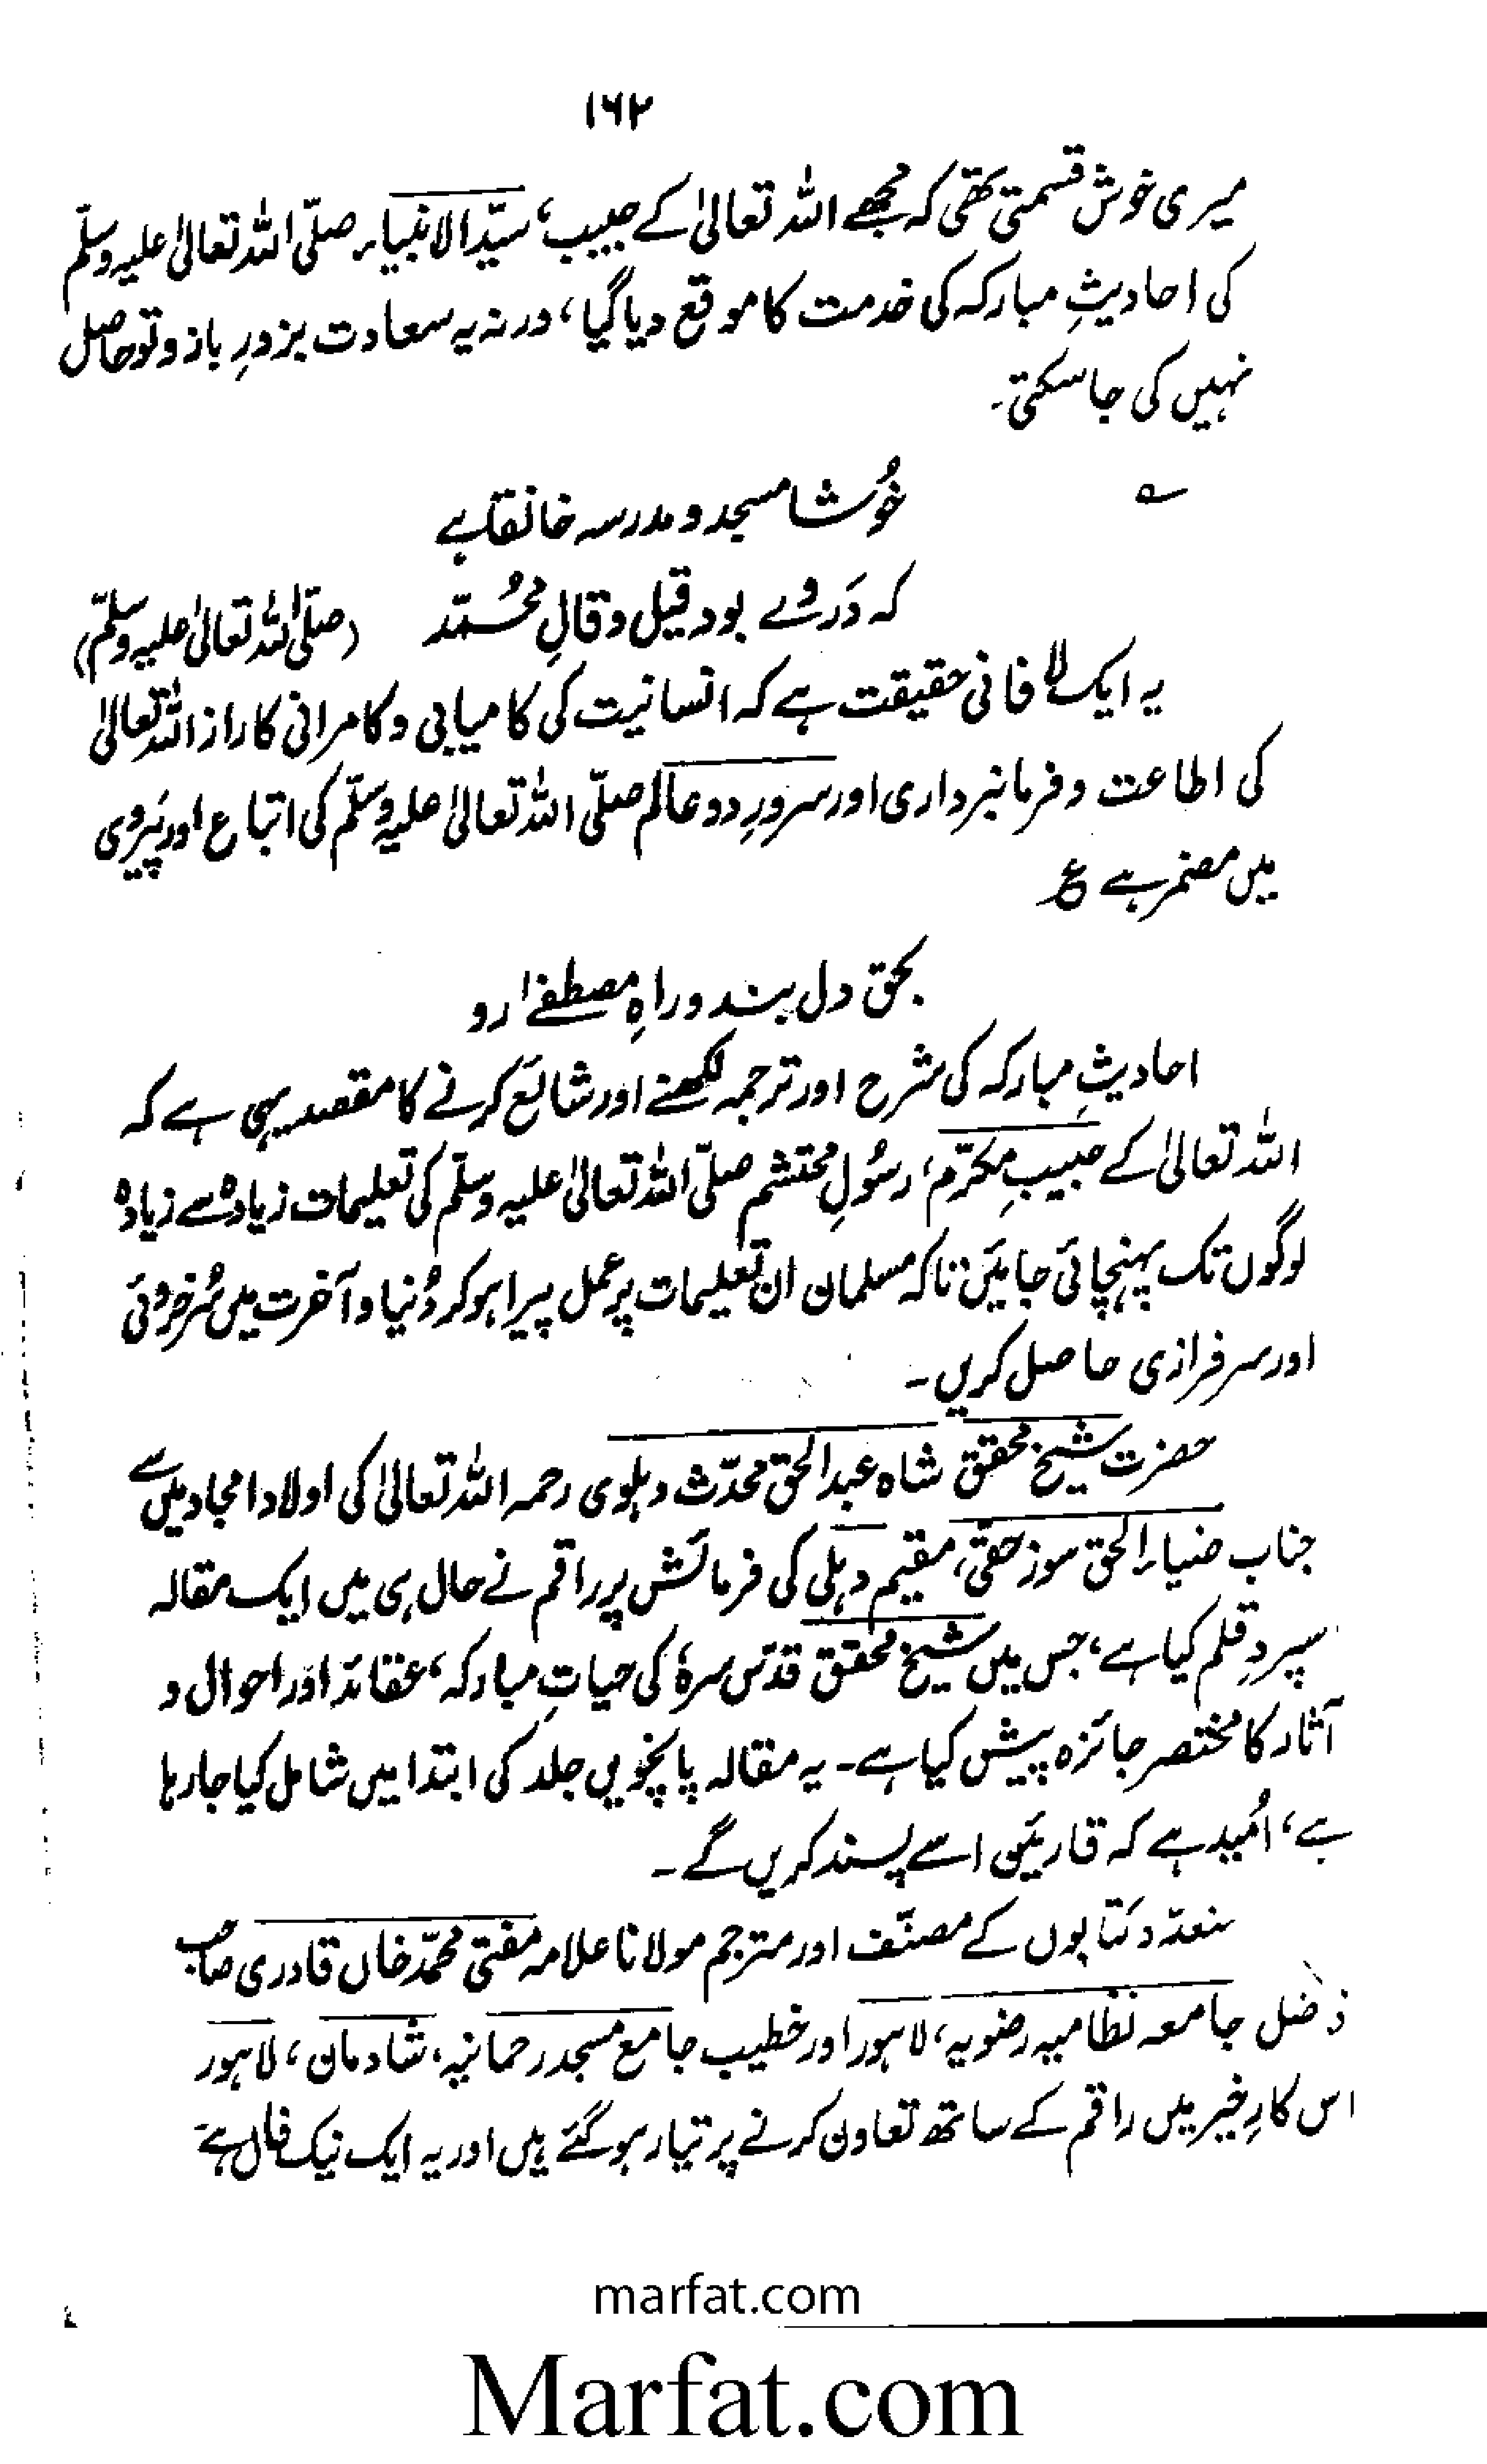 ۱۶۲
میری خوش قسمتی تھی کہ مجھے اللہ تعالیٰ کے حبیب، سیّدالانبیاء صلّی اللہ تعالیٰ علیہ وسلّم
کی احادیثِ مبارکہ کی خدمت کا موقع دیا گیا، ورنہ یہ سعادت بزورِ بازو تو حاصل
نہیں کی جا سکتی۔
؎
خُوشا مسجد و مدرسہ خانقاہے
کہ دَر وے بود قیل و قالِ محُمّد (صلّی اللہ تعالیٰ علیہ وسلّم)
یہ ایک لافانی حقیقت ہے کہ انسانیت کی کامیابی و کامرانی کا راز اللہ تعالیٰ
کی اطاعت و فرمانبرداری اور سرورِ دو عالم صلّی اللہ تعالیٰ علیہ وسلّم کی اتباع اور پَیروی
میں مضمر ہے ع
بحق دل بند و راہِ مصطفےٰ رو
احادیثِ مبارکہ کی شرح اور ترجمہ لکھنے اور شائع کرنے کا مقصد یہی ہے کہ
اللہ تعالیٰ کے حبیبِ مکرّم، رسُولِ محتشم صلّی اللہ تعالیٰ علیہ وسلّم کی تعلیمات زیادہ سے زیادہ
لوگوں تک پہنچائی جائیں تاکہ مسلمان ان تعلیمات پر عمل پیرا ہو کر دُنیا و آخرت میں سُرخروئی
اور سرفرازی حاصل کریں۔
حضرت شیخ محقق شاہ عبدالحق محدّث دہلوی رحمہ اللہ تعالیٰ کی اولاد امجاد میں سے
جناب ضیاء الحق سوز حقی، مقیم دہلی کی فرمائش پر راقم نے حال ہی میں ایک مقالہ
سپردِ قلم کیا ہے، جس میں شیخ محقق قدّس سرہٗ کی حیاتِ مبارکہ، عقائد اور احوال و
آثار کا مختصر جائزہ پیش کیا ہے۔ یہ مقالہ پانچویں جلد کی ابتدا میں شامل کیا جا رہا
ہے، اُمید ہے کہ قارئین اسے پسند کریں گے۔
متعدّد کتابوں کے مصنّف اور مترجم مولانا علامہ مفتی محمّد خاں قادری صاحب
فاضل جامعہ نظامیہ رضویہ، لاہور اور خطیب جامع مسجد رحمانیہ، شادمان، لاہور
اس کارِ خیر میں راقم کے ساتھ تعاون کرنے پر تیار ہو گئے ہیں اور یہ ایک نیک فال ہے
marfat.com
Marfat.com